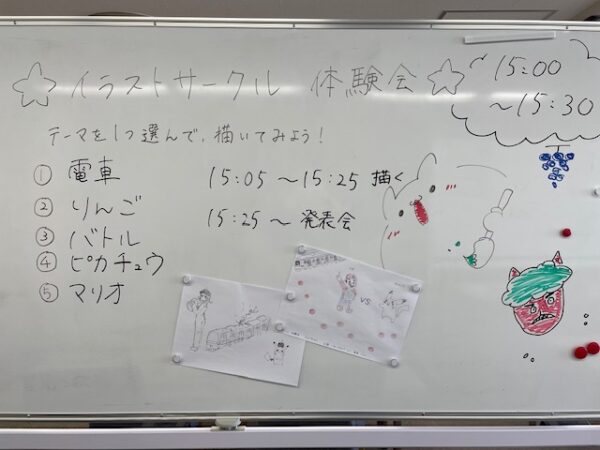 ☆イラストサークル 体験会☆
15:00
~15:30
テーマを1つ選んで、描いてみよう!
① 電車
② りんご
③ バトル
④ ピカチュウ
⑤ マリオ
15:05 ~15:25 描く
15:25~ 発表会
VS